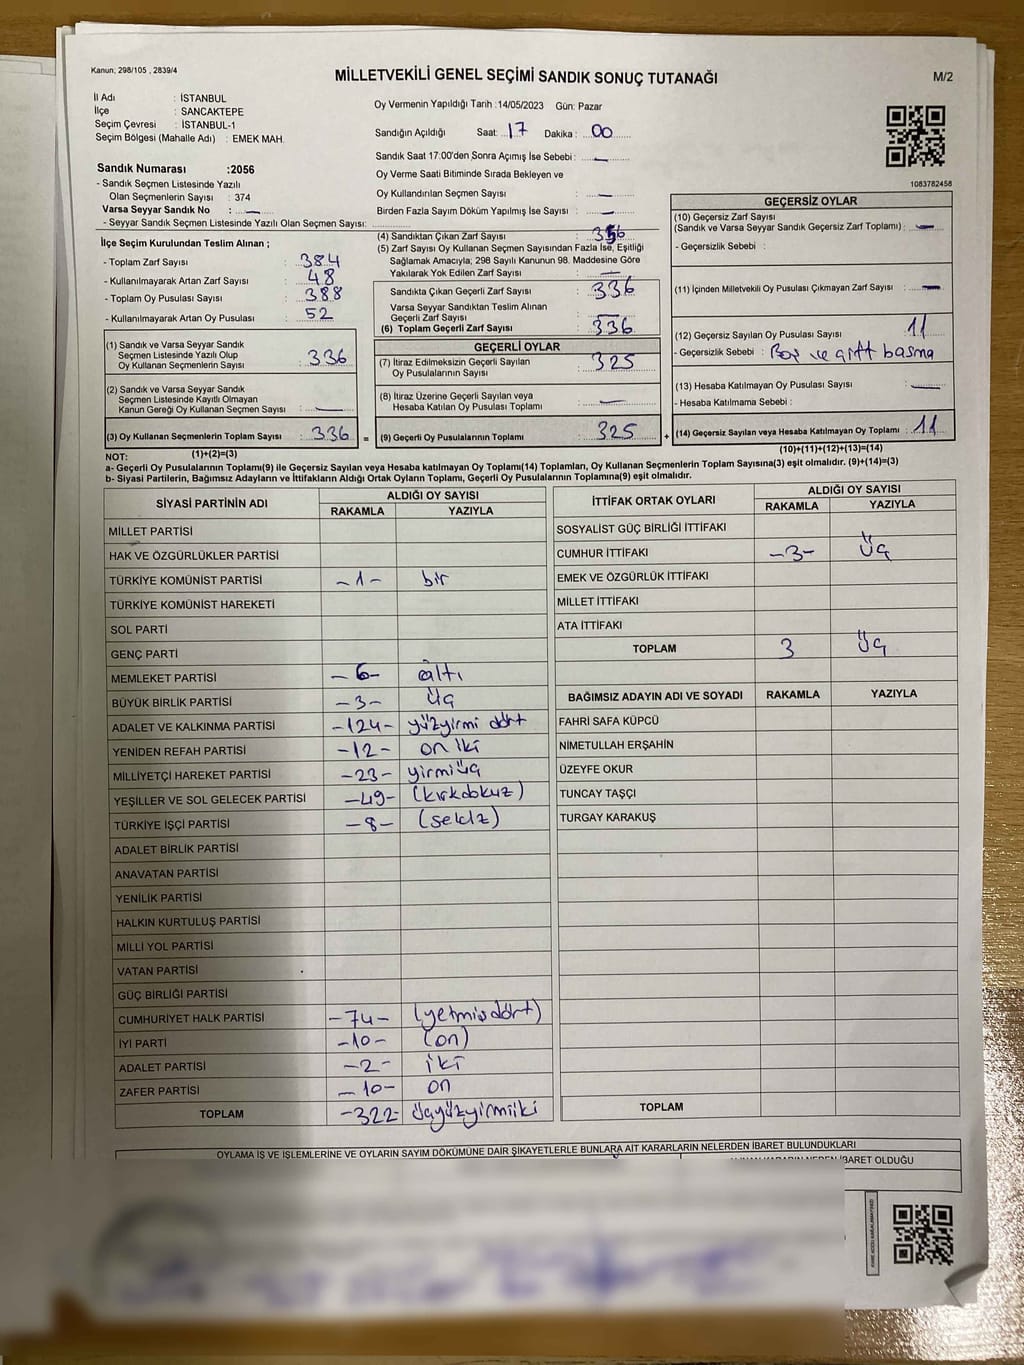 Kanun; 298/105 , 2839/4
MİLLETVEKİLİ GENEL SEÇİMİ SANDIK SONUÇ TUTANAĞI
M/2
İl Adı : İSTANBUL
İlçe : SANCAKTEPE
Seçim Çevresi : İSTANBUL-1
Seçim Bölgesi (Mahalle Adı) : EMEK MAH.
Sandık Numarası :2056
- Sandık Seçmen Listesinde Yazılı
Olan Seçmenlerin Sayısı : 374
Varsa Seyyar Sandık No : —
- Seyyar Sandık Seçmen Listesinde Yazılı Olan Seçmen Sayısı:
Oy Vermenin Yapıldığı Tarih :14/05/2023 Gün: Pazar
Sandığın Açıldığı Saat: 17 Dakika : 00
Sandık Saat 17:00'den Sonra Açımış İse Sebebi : —
Oy Verme Saati Bitiminde Sırada Bekleyen ve
Oy Kullandırılan Seçmen Sayısı : —
Birden Fazla Sayım Döküm Yapılmış İse Sayısı : —
1083782458
İlçe Seçim Kurulundan Teslim Alınan ;
- Toplam Zarf Sayısı : 384
- Kullanılmayarak Artan Zarf Sayısı : 48
- Toplam Oy Pusulası Sayısı : 388
- Kullanılmayarak Artan Oy Pusulası : 52
(1) Sandık ve Varsa Seyyar Sandık
Seçmen Listesinde Yazılı Olup
Oy Kullanan Seçmenlerin Sayısı : 336
(2) Sandık ve Varsa Seyyar Sandık
Seçmen Listesinde Kayıtlı Olmayan
Kanun Gereği Oy Kullanan Seçmen Sayısı : —
(3) Oy Kullanan Seçmenlerin Toplam Sayısı : 336 =
(1)+(2)=(3)
(4) Sandıktan Çıkan Zarf Sayısı :
(5) Zarf Sayısı Oy Kullanan Seçmen Sayısından Fazla İse, Eşitliği
Sağlamak Amacıyla; 298 Sayılı Kanunun 98. Maddesine Göre
Yakılarak Yok Edilen Zarf Sayısı : —
Sandıkta Çıkan Geçerli Zarf Sayısı : 336
Varsa Seyyar Sandıktan Teslim Alınan
Geçerli Zarf Sayısı : —
(6) Toplam Geçerli Zarf Sayısı : 336
GEÇERLİ OYLAR
(7) İtiraz Edilmeksizin Geçerli Sayılan
Oy Pusulalarının Sayısı : 325
(8) İtiraz Üzerine Geçerli Sayılan veya
Hesaba Katılan Oy Pusulası Toplamı : —
(9) Geçerli Oy Pusulalarının Toplamı : 325 +
GEÇERSİZ OYLAR
(10) Geçersiz Zarf Sayısı
(Sandık ve Varsa Seyyar Sandık Geçersiz Zarf Toplamı) : —
- Geçersizlik Sebebi :
(11) İçinden Milletvekili Oy Pusulası Çıkmayan Zarf Sayısı : —
(12) Geçersiz Sayılan Oy Pusulası Sayısı : 11
- Geçersizlik Sebebi : Boş ve çift basma
(13) Hesaba Katılmayan Oy Pusulası Sayısı : —
- Hesaba Katılmama Sebebi :
(14) Geçersiz Sayılan veya Hesaba Katılmayan Oy Toplamı : 11
(10)+(11)+(12)+(13)=(14)
NOT:
a- Geçerli Oy Pusulalarının Toplamı(9) ile Geçersiz Sayılan veya Hesaba katılmayan Oy Toplamı(14) Toplamları, Oy Kullanan Seçmenlerin Toplam Sayısına(3) eşit olmalıdır. (9)+(14)=(3)
b- Siyasi Partilerin, Bağımsız Adayların ve İttifakların Aldığı Ortak Oyların Toplamı, Geçerli Oy Pusulalarının Toplamına(9) eşit olmalıdır.
SİYASİ PARTİNİN ADI ALDIĞI OY SAYISI
RAKAMLA YAZIYLA
MİLLET PARTİSİ
HAK VE ÖZGÜRLÜKLER PARTİSİ
TÜRKİYE KOMÜNİST PARTİSİ -1- bir
TÜRKİYE KOMÜNİST HAREKETİ
SOL PARTİ
GENÇ PARTİ
MEMLEKET PARTİSİ -6- altı
BÜYÜK BİRLİK PARTİSİ -3- üç
ADALET VE KALKINMA PARTİSİ -124- yüzyirmi dört
YENİDEN REFAH PARTİSİ -12- on iki
MİLLİYETÇİ HAREKET PARTİSİ -23- yirmiüç
YEŞİLLER VE SOL GELECEK PARTİSİ -49- (kırkdokuz)
TÜRKİYE İŞÇİ PARTİSİ -8- (sekiz)
ADALET BİRLİK PARTİSİ
ANAVATAN PARTİSİ
YENİLİK PARTİSİ
HALKIN KURTULUŞ PARTİSİ
MİLLİ YOL PARTİSİ
VATAN PARTİSİ
GÜÇ BİRLİĞİ PARTİSİ
CUMHURİYET HALK PARTİSİ -74- (yetmişdört)
İYİ PARTİ -10- (on)
ADALET PARTİSİ -2- iki
ZAFER PARTİSİ -10- on
TOPLAM -322- üçyüzyirmiiki
İTTİFAK ORTAK OYLARI ALDIĞI OY SAYISI
RAKAMLA YAZIYLA
SOSYALİST GÜÇ BİRLİĞİ İTTİFAKI
CUMHUR İTTİFAKI -3- üç
EMEK VE ÖZGÜRLÜK İTTİFAKI
MİLLET İTTİFAKI
ATA İTTİFAKI
TOPLAM 3 üç
BAĞIMSIZ ADAYIN ADI VE SOYADI RAKAMLA YAZIYLA
FAHRİ SAFA KÜPCÜ
NİMETULLAH ERŞAHİN
ÜZEYFE OKUR
TUNCAY TAŞÇI
TURGAY KARAKUŞ
TOPLAM
OYLAMA İŞ VE İŞLEMLERİNE VE OYLARIN SAYIM DÖKÜMÜNE DAİR ŞİKAYETLERLE BUNLARA AİT KARARLARIN NELERDEN İBARET BULUNDUKLARI
İBARET OLDUĞU